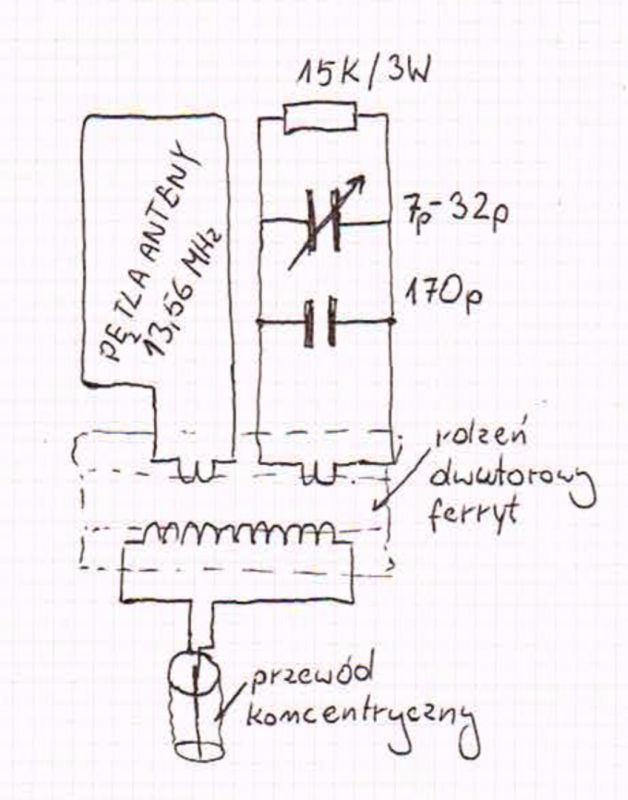 15K/3W
7p-32p
170p
PĘTLA ANTENY
13,56 MHz
rdzeń
dwutorowy
ferryt
przewód
koncentryczny